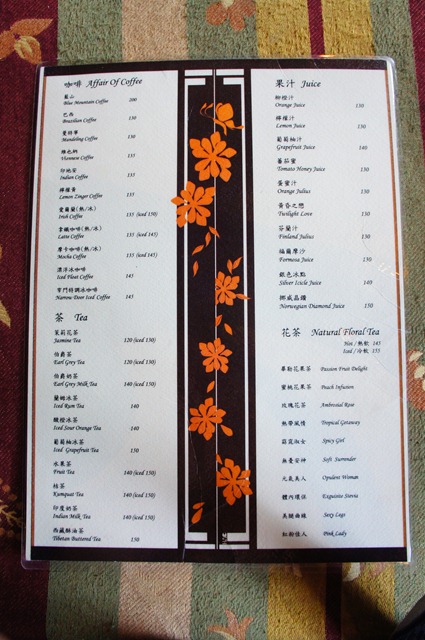 咖啡 Affair Of Coffee
藍山
Blue Mountain Coffee 200
巴西
Brazilian Coffee 130
曼特寧
Mandeling Coffee 130
維也納
Viennese Coffee 135
印地安
Indian Coffee 135
檸檬黃
Lemon Zinger Coffee 135
愛爾蘭(熱/冰)
Irish Coffee 135 (iced 150)
拿鐵咖啡(熱/冰)
Latte Coffee 135 (iced 145)
摩卡咖啡(熱/冰)
Mocha Coffee 135 (iced 145)
漂浮冰咖啡
Iced Float Coffee 145
窄門特調冰咖啡
Narrow Door Iced Coffee 145
茶 Tea
茉莉花茶
Jasmine Tea 120 (iced 130)
伯爵茶
Earl Grey Tea 120 (iced 130)
伯爵奶茶
Earl Grey Milk Tea 140 (iced 150)
蘭姆冰茶
Iced Rum Tea 140
酸橙冰茶
Iced Sour Orange Tea 140
葡萄柚冰茶
Iced Grapefruit Tea 150
水果茶
Fruit Tea 140 (iced 150)
桔茶
Kumquat Tea 140 (iced 150)
印度奶茶
Indian Milk Tea 140 (iced 150)
西藏酥油茶
Tibetan Buttered Tea 150
果汁 Juice
柳橙汁
Orange Juice 130
檸檬汁
Lemon Juice 130
葡萄柚汁
Grapefruit Juice 140
蕃茄蜜
Tomato Honey Juice 130
蛋蜜汁
Orange Julius 130
黃昏之戀
Twilight Love 130
芬蘭汁
Finland Julius 130
福爾摩沙
Formosa Juice 130
銀色冰點
Silver Icicle Juice 140
挪威晶鑽
Norwegian Diamond Juice 150
花茶 Natural Floral Tea
Hot / 熱飲 145
Iced / 冷飲 155
慕勒花果茶 Passion Fruit Delight
蜜桃花果茶 Peach Infusion
玫瑰花茶 Ambrosial Rose
熱帶風情 Tropical Getaway
窈窕淑女 Spicy Girl
無憂安神 Soft Surrender
元氣美人 Opulent Woman
體內環保 Exquisite Stevia
美腿曲線 Sexy Legs
紅粉佳人 Pink Lady